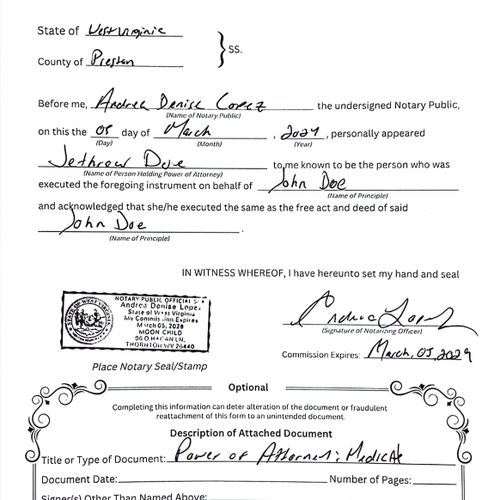 State of West Virginia
County of Preston
} SS.
Before me, Andrea Denise Lopez the undersigned Notary Public,
(Name of Notary Public)
on this the 05 day of March, 2024, personally appeared
(Day) (Month) (Year)
Jethrow Doe to me known to be the person who was
(Name of Person Holding Power of Attorney)
executed the foregoing instrument on behalf of John Doe
(Name of Principle)
and acknowledged that she/he executed the same as the free act and deed of said
John Doe.
(Name of Principle)
IN WITNESS WHEREOF, I have hereunto set my hand and seal
NOTARY PUBLIC OFFICIAL
Andrea Denise Lopez
State of West Virginia
My Commission Expires
March 05, 2029
MOON CHILD
THORNTON WV 26440
Andrea Lopez
(Signature of Notarizing Officer)
Commission Expires: March, 05, 2029
Place Notary Seal/Stamp
Optional
Completing this information can deter alteration of the document or fraudulent
reattachment of this form to an unintended document.
Description of Attached Document
Title or Type of Document: Power of Attorney: Medical
Document Date: Number of Pages:
Signer(s) Other Than Named Above: